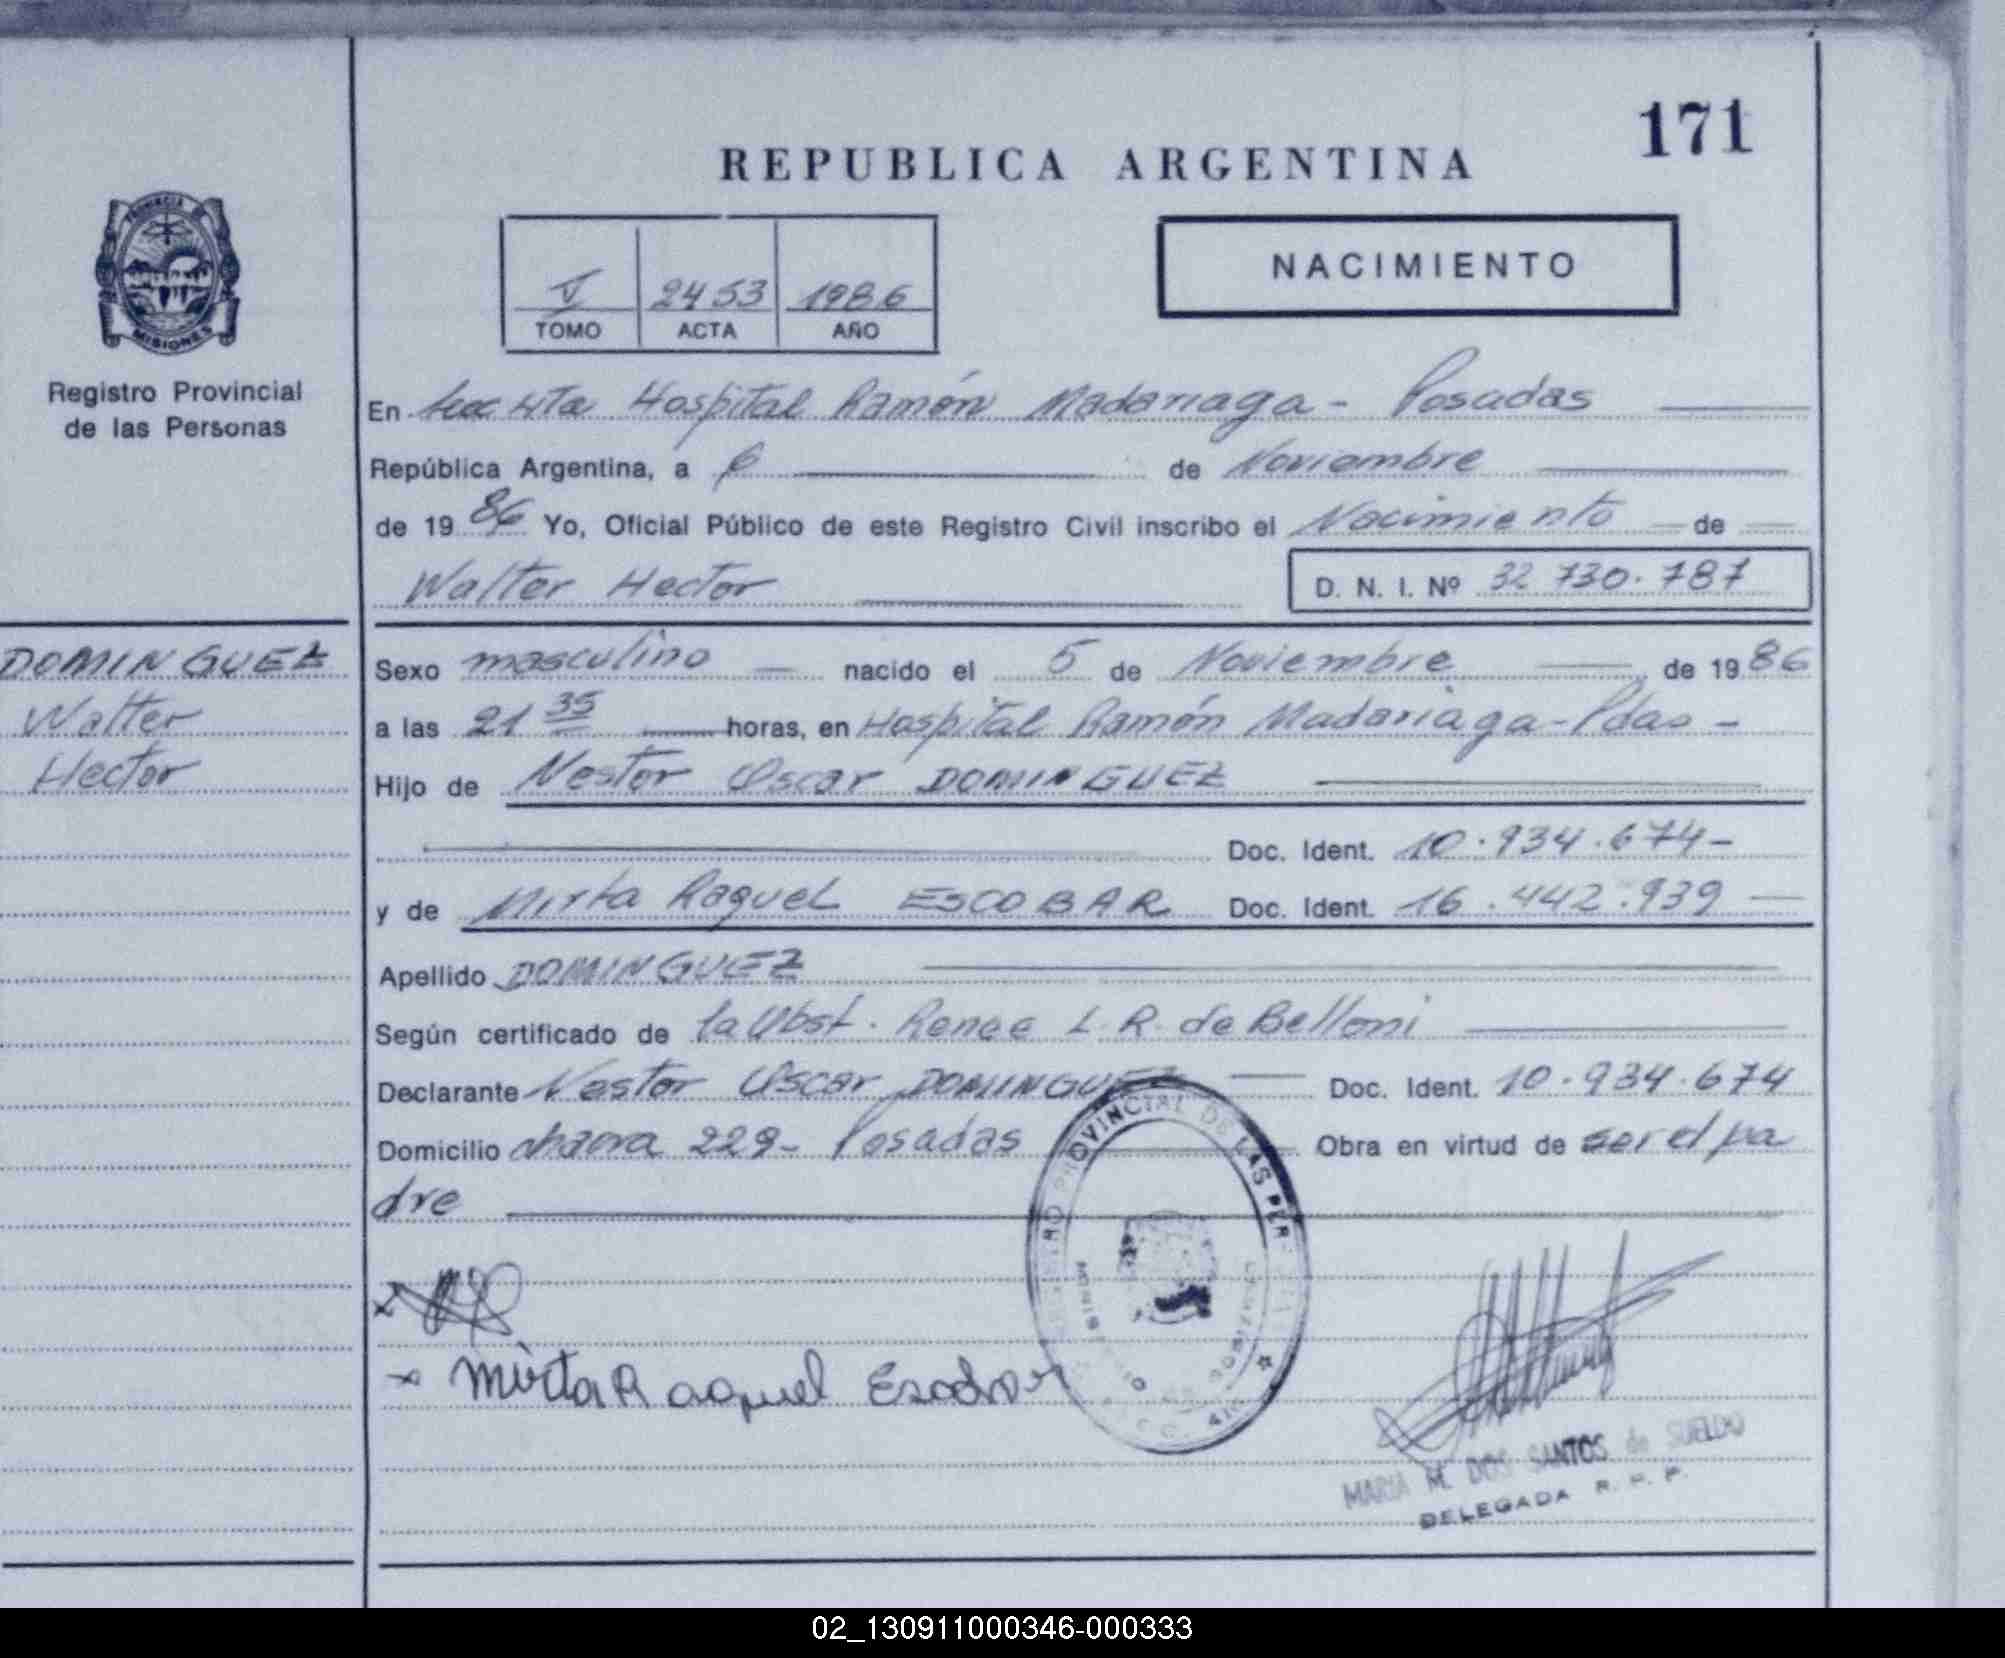 171
REPUBLICA ARGENTINA
PROVINCIA DE
MISIONES
Registro Provincial
de las Personas
V 2453 1986
TOMO ACTA AÑO
NACIMIENTO
En Hospital Ramón Madariaga - Posadas
República Argentina, a 6 de Noviembre
de 1986 Yo, Oficial Público de este Registro Civil inscribo el Nacimiento de
Walter Hector
D. N. I. Nº 32 730.787
DOMINGUEZ
Walter
Hector
Sexo masculino nacido el 5 de Noviembre de 1986
a las 21 35 horas, en Hospital Ramón Madariaga - Pdas -
Hijo de Nestor Oscar DOMINGUEZ
Doc. Ident. 10.934.674-
y de Mirta Raquel ESCOBAR Doc. Ident. 16.442.939
Apellido DOMINGUEZ
Según certificado de la Obst. Renee L. R. de Belloni
Declarante Nestor Oscar DOMINGUEZ Doc. Ident. 10.934.674
Domicilio chacra 229- Posadas Obra en virtud de ser el pa
dre
PROVINCIAL DE LAS PER
Mirta Raquel Escobar
MARIA M. DOS SANTOS de SUELDO
DELEGADA R. P. P.
02_130911000346-000333